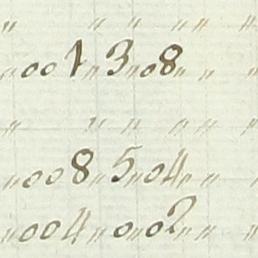 " " " " "
"001"3"08" "
" " " " "
"008"5"04" "
"004"0"02" "